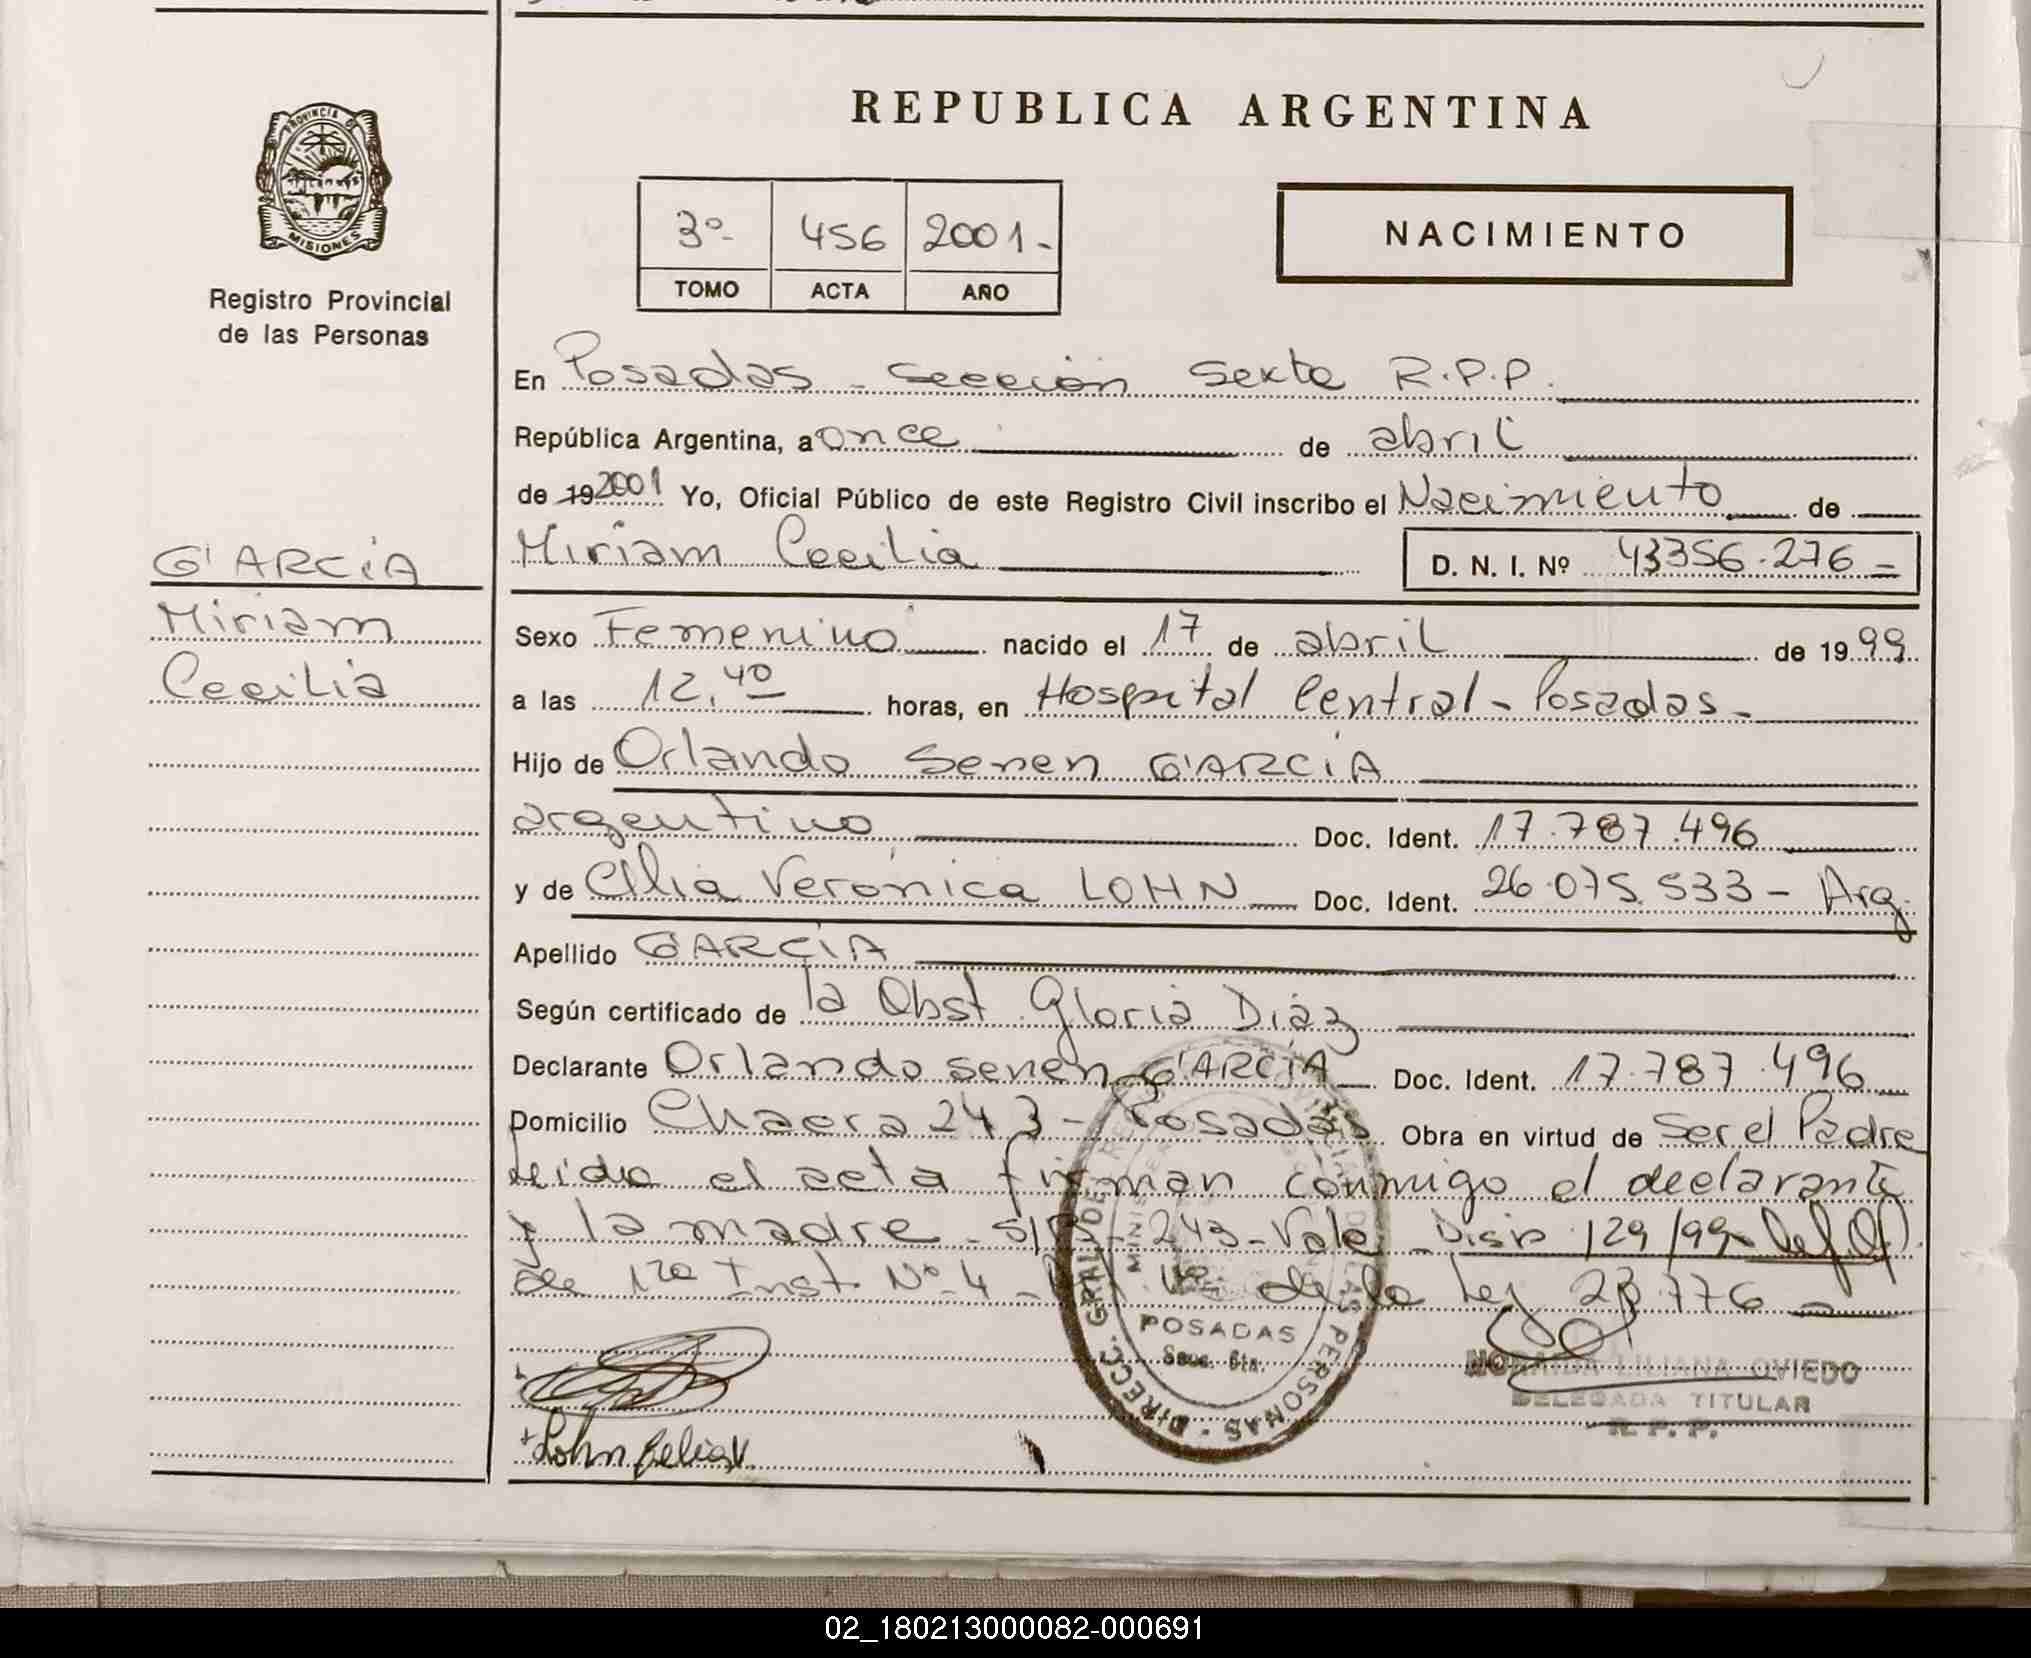 REPUBLICA ARGENTINA
PROVINCIA DE
MISIONES
Registro Provincial
de las Personas
3º- 456 2001-
TOMO ACTA AÑO
NACIMIENTO
En Posadas - Sección Sexta R.P.P.
República Argentina, a once de abril
de 19 2001 Yo, Oficial Público de este Registro Civil inscribo el Nacimiento de
G'ARCíA
Miriam Cecilia D. N. I. Nº 43356.276 =
Miriam
Cecilia
Sexo Femenino nacido el 17 de abril de 1999
a las 12,40 horas, en Hospital Central - Posadas -
Hijo de Orlando Senen G'ARCíA
argentino Doc. Ident. 17.787.496
y de Verónica LOHN Doc. Ident. 26.075.533 - Arg.
Apellido G'ARCíA
Según certificado de la Obst Gloria Díaz
Declarante Orlando Senen G'ARCíA Doc. Ident. 17.787.496
Domicilio Chacra 243 - Posadas Obra en virtud de Ser el Padre
Leida el acta firman conmigo el declarante
y la madre - 243 - Vale - Disp 129/99
de 1ra Inst. Nº 4 - de la Ley 23.776
DIREC. GRAL. DEL DE LAS PERSONAS
POSADAS
Secc. 6ta.
LILIANA OVIEDO
DELEGADA TITULAR
R. P. P.
Lohn V.
02_180213000082-000691